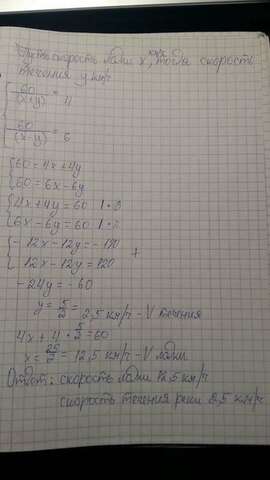 Пусть скорость лодки x км/ч, тогда скорость
течения y км/ч
60/(x+y) = 4
60/(x-y) = 6
{60 = 4x+4y
{60 = 6x-6y
{4x+4y=60 |·3
{6x-6y=60 |·2
{-12x-12y=-180
{12x-12y=120 +
-24y=-60
y=5/2=2,5 км/ч - V течения
4x+4·5/2=60
x=25/2=12,5 км/ч - V лодки
Ответ: скорость лодки 12,5 км/ч
скорость течения реки 2,5 км/ч